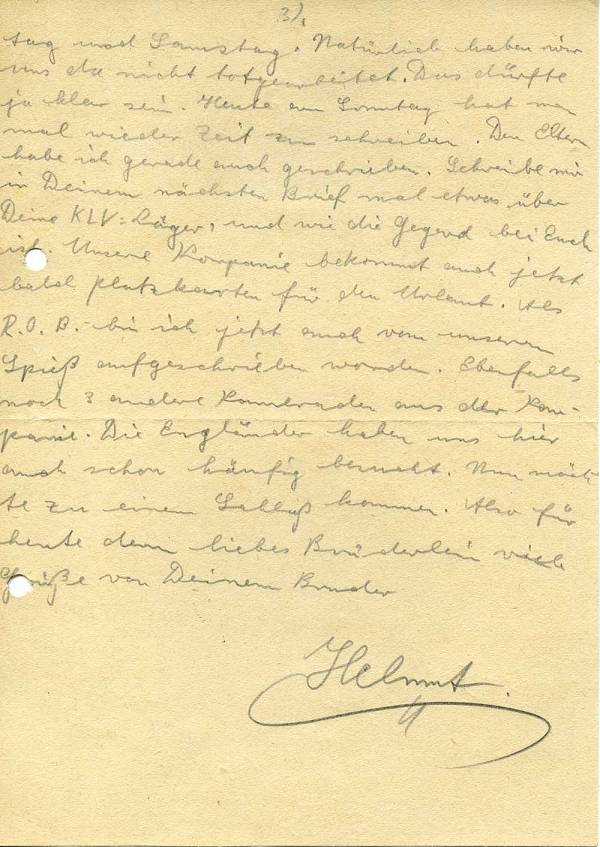 3).
tag und Samstag. Natürlich haben wir
uns da nicht totgearbeitet. Das dürfte
ja klar sein. Heute am Sonntag hat man
mal wieder Zeit zu schreiben. Den Eltern
habe ich gerade auch geschrieben. Schreibe mir
in Deinem nächsten Brief mal etwas über
Deine KLV=Läger, und wie die Gegend bei Euch
ist. Unsere Kompanie bekommt auch jetzt
bald Platzkarten für den Urlaub. Als
R.O.B. bin ich jetzt auch von unserem
Spieß aufgeschrieben worden. Ebenfalls
noch 3 andere Kameraden aus der Kom-
panie. Die Engländer haben uns hier
auch schon häufig besucht. Nun möch-
te zu einem Schluß kommen. Also für
heute dann liebes Brüderlein viele
Grüße von Deinem Bruder
Helmut.